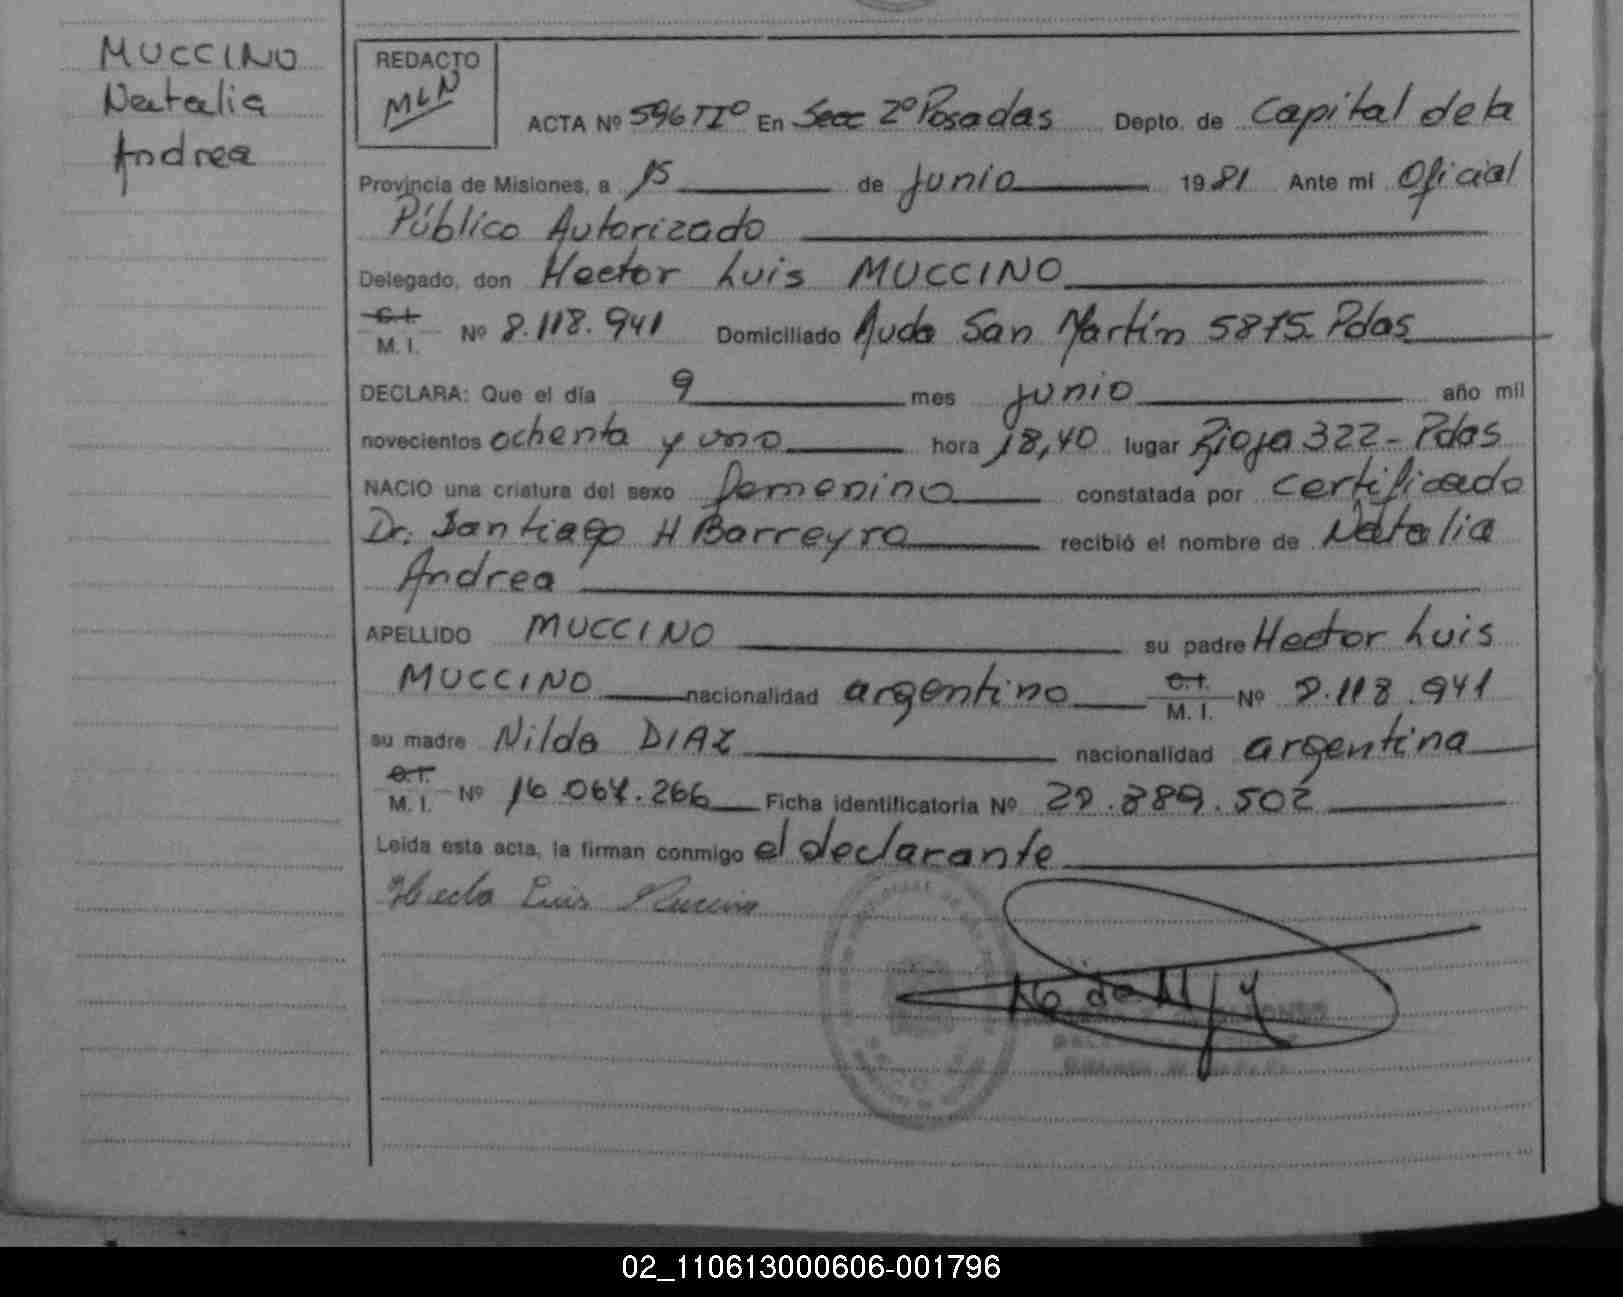 MUCCINO
Natalia
Andrea
REDACTO
MLN
ACTA Nº 596 TIº En Secc 2º Posadas Depto. de Capital de la
Provincia de Misiones, a 15 de junio 1981 Ante mi Oficial
Público Autorizado
Delegado, don Hector Luis MUCCINO
C.I.
M. I. Nº 8.118.941 Domiciliado Avda San Martín 5875 - Pdas
DECLARA: Que el día 9 mes junio año mil
novecientos ochenta y uno hora 18,40 lugar Rioja 322 - Pdas
NACIO una criatura del sexo femenino constatada por certificado
Dr. Santiago H Barreyro recibió el nombre de Natalia
Andrea
APELLIDO MUCCINO su padre Hector Luis
MUCCINO nacionalidad argentino C.I.
M. I. Nº 8.118.941
su madre Nilda DIAZ nacionalidad argentina
C.I.
M. I. Nº 16.064.266 Ficha identificatoria Nº 28.889.502
Leída esta acta, la firman conmigo el declarante
02_110613000606-001796